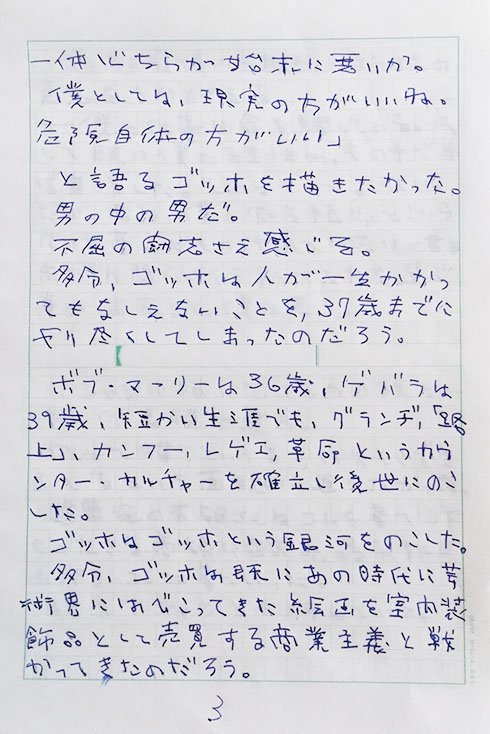 一体どちらが始末に悪いか。
僕としては、現実の方がいいね。
危険自体の方がいい」
と語るゴッホを描きたかった。
男の中の男だ。
不屈の闘志さえ感じる。
多分、ゴッホは人が一生かかっ
てもなしえないことを、37歳までに
やり尽くしてしまったのだろう。
ボブ・マーリーは36歳、ゲバラは
39歳、短かい生涯でも、グランヂ、「路
上」、カンフー、レゲエ、革命というカウ
ンター・カルチャーを確立し後世にのこ
した。
ゴッホはゴッホという銀河をのこした。
多分、ゴッホは既にあの時代に芸
術界にはびこってきた絵画を室内装
飾品として売買する商業主義と戦
かってきたのだろう。
3